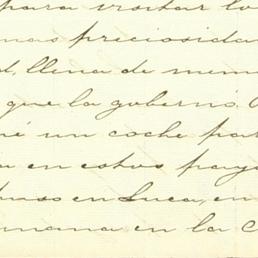 para visitar lo
mas preciosida
d, llena de mem
que la gobernó.
né un coche par
a en estos pays
puso en Luca, en
mana en la C